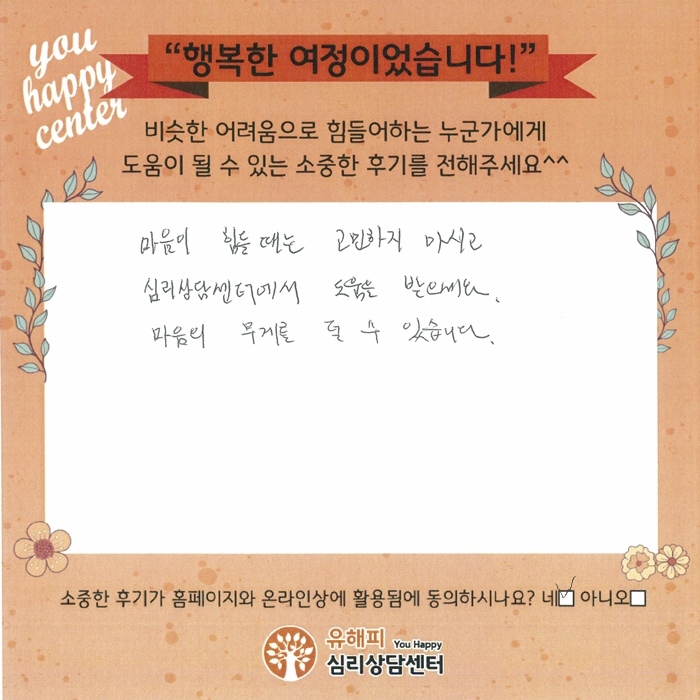 you
happy
center
“행복한 여정이었습니다!”
비슷한 어려움으로 힘들어하는 누군가에게
도움이 될 수 있는 소중한 후기를 전해주세요^^
마음이 힘들 때는 고민하지 마시고
심리상담센터에서 도움을 받으세요.
마음의 무게를 덜 수 있습니다.
소중한 후기가 홈페이지와 온라인상에 활용됨에 동의하시나요? 네☑ 아니오□
유해피 You Happy
심리상담센터